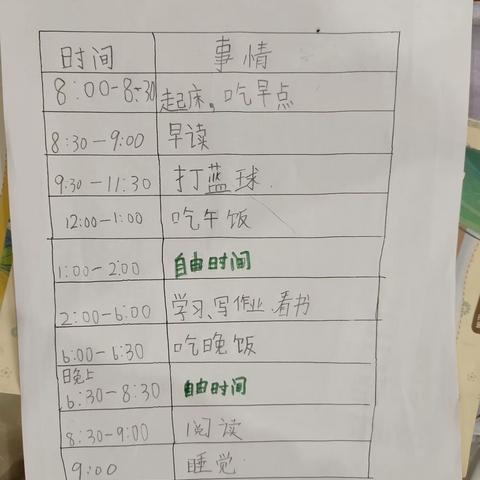 时间 事情
8:00-8:30 起床,吃早点
8:30-9:00 早读
9:30-11:30 打蓝球.
12:00-1:00 吃午饭
1:00-2:00 自由时间
2:00-6:00 学习、写作业、看书
6:00-6:30 吃晚饭
晚上
6:30-8:30 自由时间
8:30-9:00 阅读
9:00 睡觉